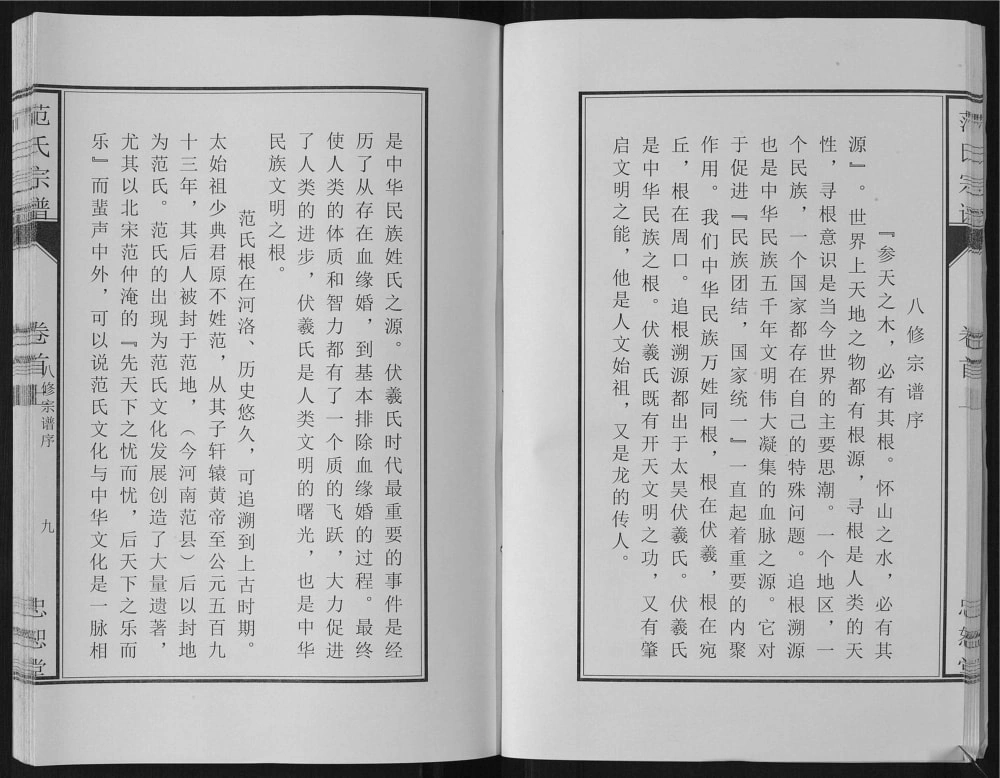 八修宗谱序
『参天之木，必有其根。怀山之水，必有其
源』。世界上天地之物都有根源，寻根是人类的天
性，寻根意识是当今世界的主要思潮。一个地区，一
个民族，一个国家都存在自己的特殊问题。追根溯源
也是中华民族五千年文明伟大凝集的血脉之源。它对
于促进『民族团结，国家统一』一直起着重要的内聚
作用。我们中华民族万姓同根，根在伏羲，根在宛
丘，根在周口。追根溯源都出于太昊伏羲氏。伏羲氏
是中华民族之根。伏羲氏既有开天文明之功，又有肇
启文明之能，他是人文始祖，又是龙的传人。
是中华民族姓氏之源。伏羲氏时代最重要的事件是经
历了从存在血缘婚，到基本排除血缘婚的过程。最终
使人类的体质和智力都有了一个质的飞跃，大力促进
了人类的进步，伏羲氏是人类文明的曙光，也是中华
民族文明之根。
范氏根在河洛、历史悠久，可追溯到上古时期。
太始祖少典君原不姓范，从其子轩辕黄帝至公元五百九
十三年，其后人被封于范地，（今河南范县）后以封地
为范氏。范氏的出现为范氏文化发展创造了大量遗著，
尤其以北宋范仲淹的『先天下之忧而忧，后天下之乐而
乐』而蜚声中外，可以说范氏文化与中华文化是一脉相
范氏宗谱
卷首
八修宗谱序
九
忠恕堂